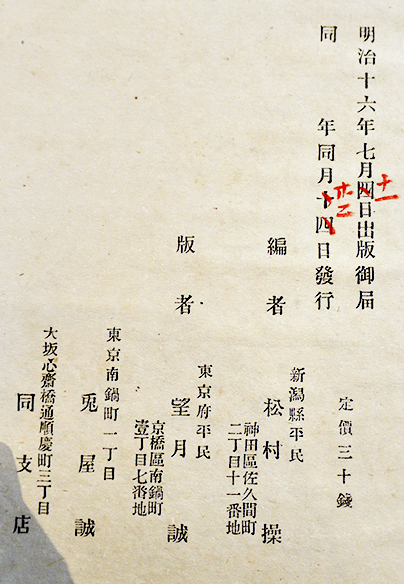 明治十六年七月四日出版御届
十一
同年同月十四日發行
廿二
定價三十錢
編者
新潟縣平民
松村操
神田區佐久間町
二丁目十一番地
版者
東京府平民
望月誠
京橋區南鍋町
壹丁目七番地
東京南鍋町一丁目
兎屋誠
大坂心齋橋通順慶町三丁目
同支店